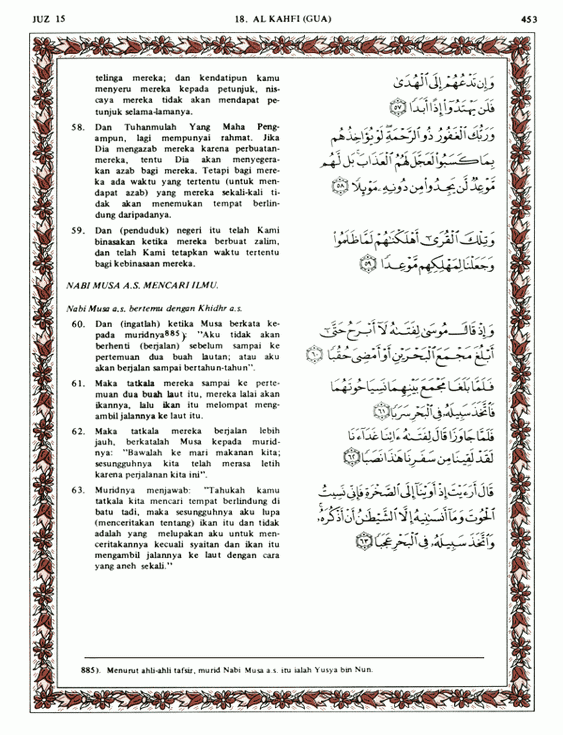 JUZ 15
18. AL KAHFI (GUA)
453
telinga mereka; dan kendatipun kamu
menyeru mereka kepada petunjuk, nis-
caya mereka tidak akan mendapat pe-
tunjuk selama-lamanya.
58. Dan Tuhanmulah Yang Maha Peng-
ampun, lagi mempunyai rahmat. Jika
Dia mengazab mereka karena perbuatan-
mereka, tentu Dia akan menyegera-
kan azab bagi mereka. Tetapi bagi mere-
ka ada waktu yang tertentu (untuk men-
dapat azab) yang mereka sekali-kali ti-
dak akan menemukan tempat berlin-
dung daripadanya.
59. Dan (penduduk) negeri itu telah Kami
binasakan ketika mereka berbuat zalim,
dan telah Kami tetapkan waktu tertentu
bagi kebinasaan mereka.
NABI MUSA A.S. MENCARI ILMU.
Nabi Musa a.s. bertemu dengan Khidhr a.s.
60. Dan (ingatlah) ketika Musa berkata ke-
pada muridnya885): "Aku tidak akan
berhenti (berjalan) sebelum sampai ke
pertemuan dua buah lautan; atau aku
akan berjalan sampai bertahun-tahun".
61. Maka tatkala mereka sampai ke perte-
muan dua buah laut itu, mereka lalai akan
ikannya, lalu ikan itu melompat meng-
ambil jalannya ke laut itu.
62. Maka tatkala mereka berjalan lebih
jauh, berkatalah Musa kepada murid-
nya: "Bawalah ke mari makanan kita;
sesungguhnya kita telah merasa letih
karena perjalanan kita ini".
63. Muridnya menjawab: "Tahukah kamu
tatkala kita mencari tempat berlindung di
batu tadi, maka sesungguhnya aku lupa
(menceritakan tentang) ikan itu dan tidak
adalah yang melupakan aku untuk men-
ceritakannya kecuali syaitan dan ikan itu
mengambil jalannya ke laut dengan cara
yang aneh sekali."
وَإِن تَدْعُهُمْ إِلَى ٱلْهُدَىٰ
فَلَن يَهْتَدُوٓا۟ إِذًا أَبَدًا ﴿٥٧﴾
وَرَبُّكَ ٱلْغَفُورُ ذُو ٱلرَّحْمَةِ ۖ لَوْ يُؤَاخِذُهُم
بِمَا كَسَبُوا۟ لَعَجَّلَ لَهُمُ ٱلْعَذَابَ ۚ بَل لَّهُم
مَّوْعِدٌ لَّن يَجِدُوا۟ مِن دُونِهِۦ مَوْئِلًا ﴿٥٨﴾
وَتِلْكَ ٱلْقُرَىٰٓ أَهْلَكْنَٰهُمْ لَمَّا ظَلَمُوا۟
وَجَعَلْنَا لِمَهْلِكِهِم مَّوْعِدًا ﴿٥٩﴾
وَإِذْ قَالَ مُوسَىٰ لِفَتَىٰهُ لَآ أَبْرَحُ حَتَّىٰٓ
أَبْلُغَ مَجْمَعَ ٱلْبَحْرَيْنِ أَوْ أَمْضِىَ حُقُبًا ﴿٦٠﴾
فَلَمَّا بَلَغَا مَجْمَعَ بَيْنِهِمَا نَسِيَا حُوتَهُمَا
فَٱتَّخَذَ سَبِيلَهُۥ فِى ٱلْبَحْرِ سَرَبًا ﴿٦١﴾
فَلَمَّا جَاوَزَا قَالَ لِفَتَىٰهُ ءَاتِنَا غَدَآءَنَا
لَقَدْ لَقِينَا مِن سَفَرِنَا هَٰذَا نَصَبًا ﴿٦٢﴾
قَالَ أَرَءَيْتَ إِذْ أَوَيْنَآ إِلَى ٱلصَّخْرَةِ فَإِنِّى نَسِيتُ
ٱلْحُوتَ وَمَآ أَنسَىٰنِيهُ إِلَّا ٱلشَّيْطَٰنُ أَنْ أَذْكُرَهُۥ ۚ
وَٱتَّخَذَ سَبِيلَهُۥ فِى ٱلْبَحْرِ عَجَبًا ﴿٦٣﴾
885). Menurut ahli-ahli tafsir, murid Nabi Musa a.s. itu ialah Yusya bin Nun.